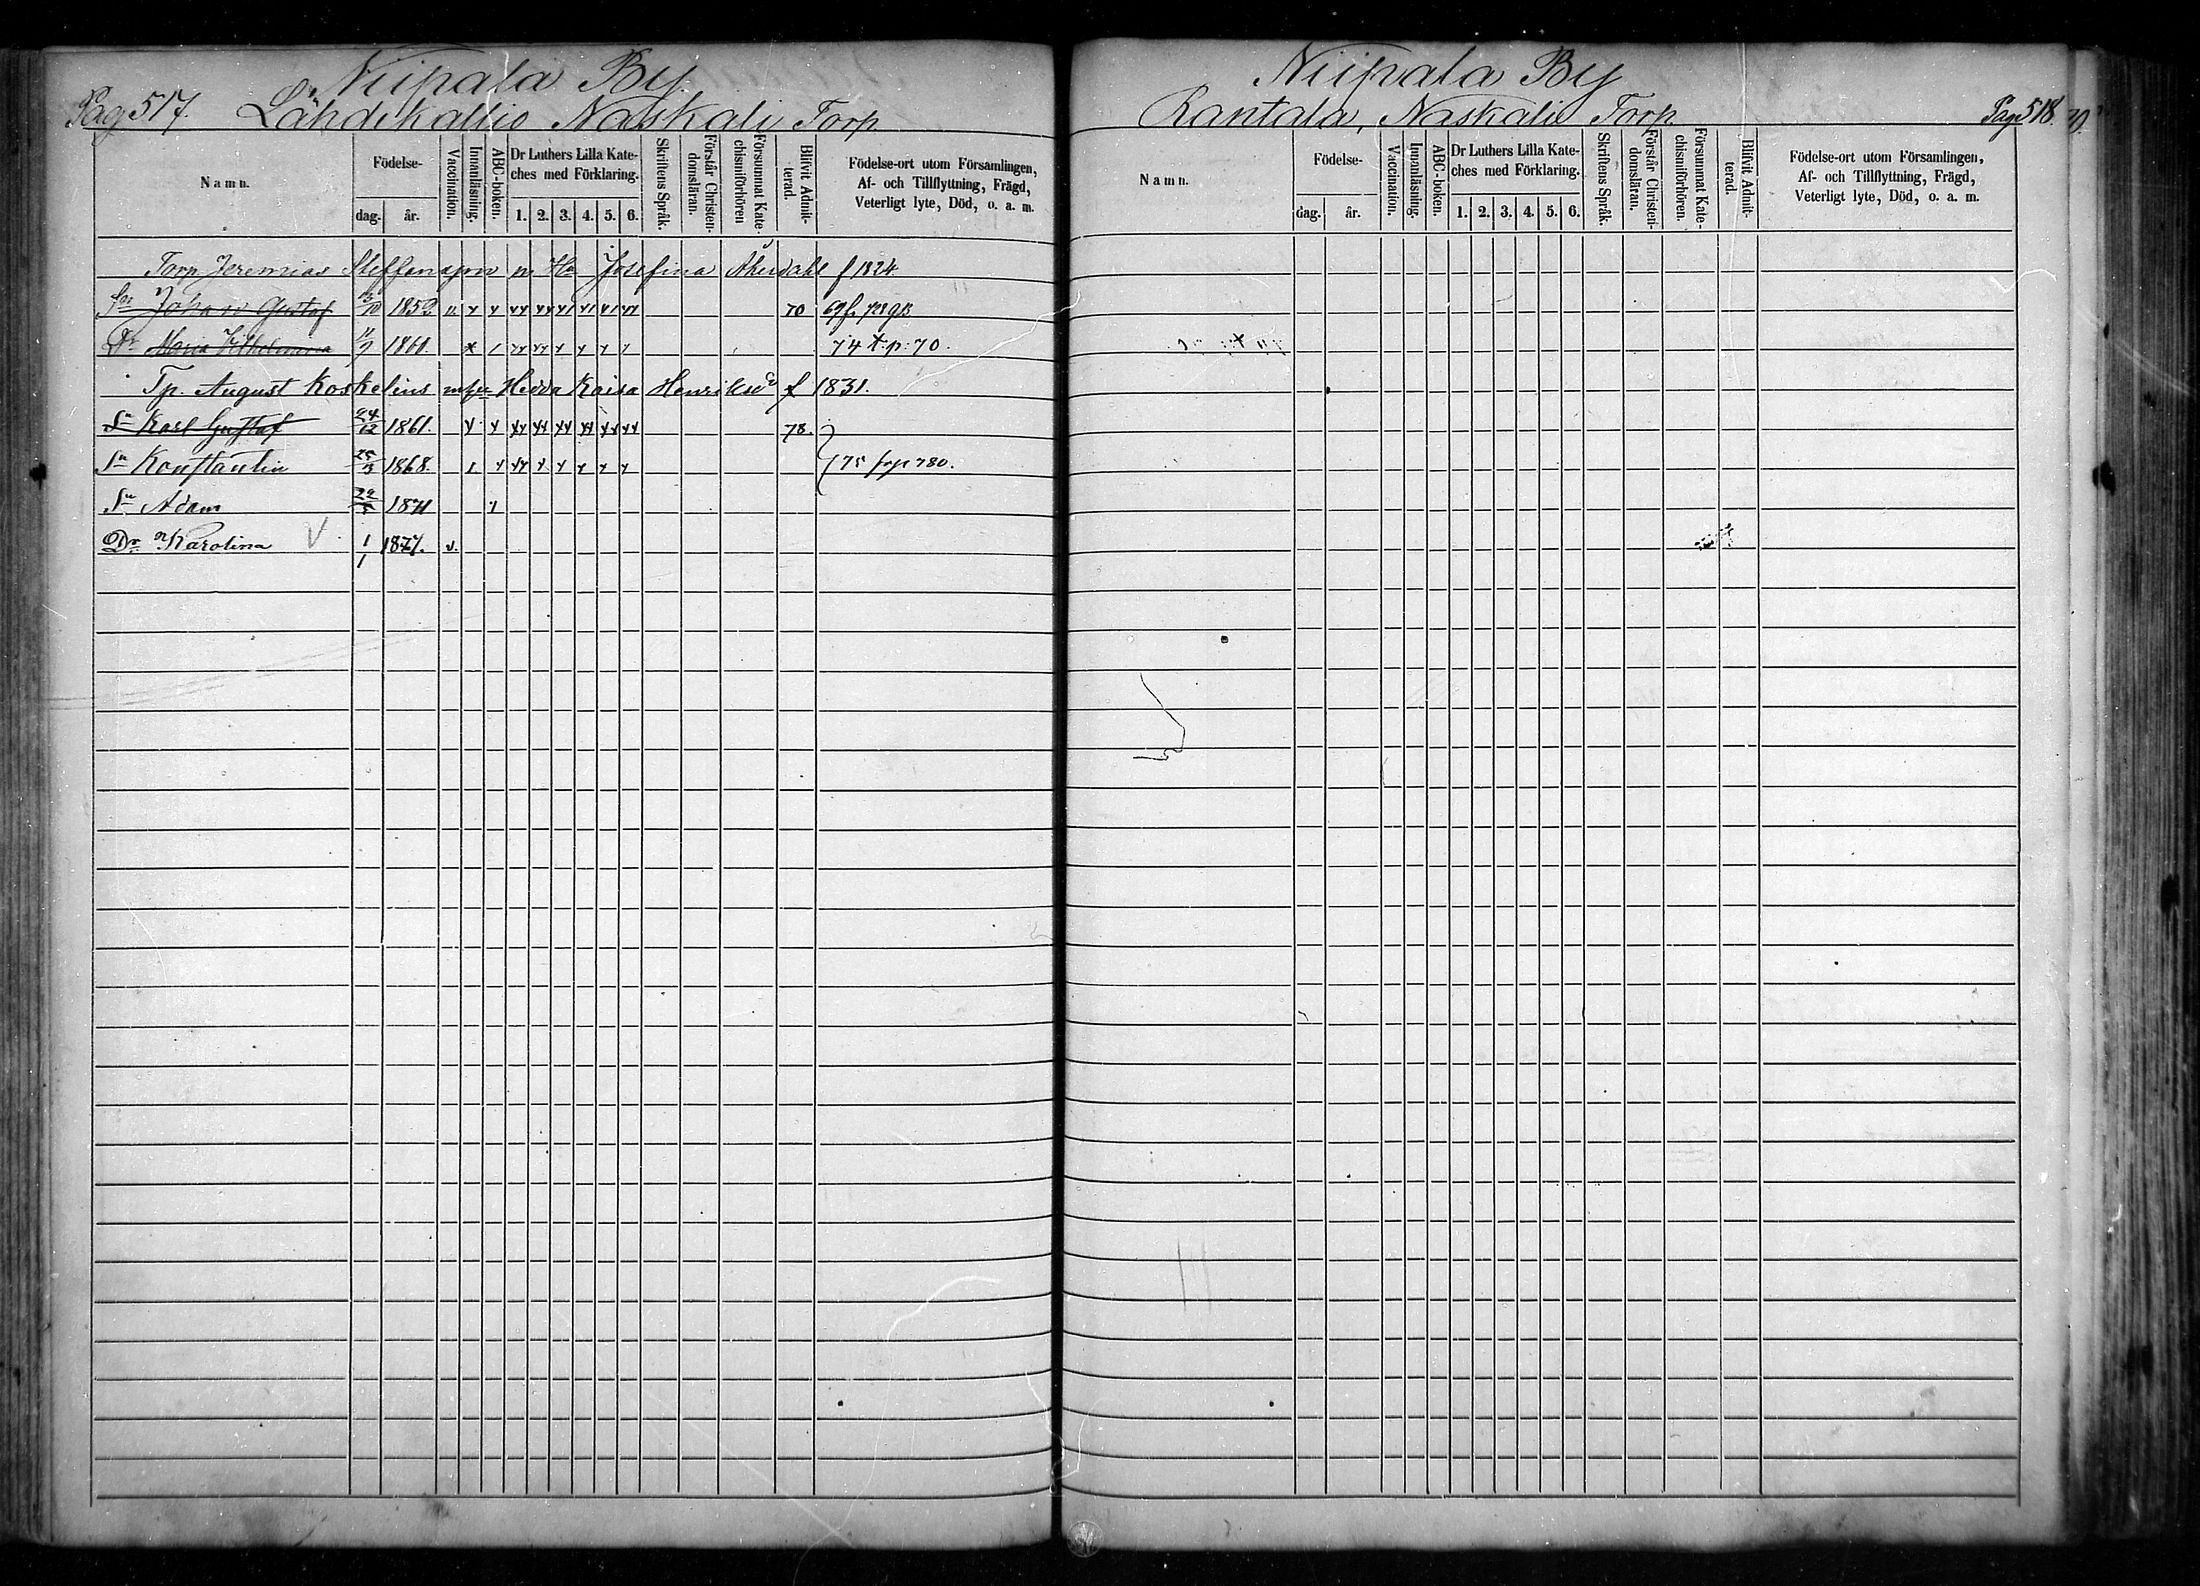 Niipala By.
Pag 517. Lähdekallio Naskali Torp
Namn. Födelse- dag. år. Vaccination. Innanläsning. ABC-boken. Dr Luthers Lilla Kateches med Förklaring. 1. 2. 3. 4. 5. 6. Skriftens Språk. Förstår Christendomsläran. Försummat Katechismiförhören Blifvit Admitterad. Födelse-ort utom Församlingen, Af- och Tillflyttning, Frägd, Veterligt lyte, Död, o. a. m.
Torp Jeremias Steffansson m Hu Josefina Åkerdahl f 1824
Sn Johan Gustaf 13/10 1852 70
Dr Maria Vilhelmina 11/9 1861. 74 t.p: 70.
Tp. August Koskelins m hu Hedda Kaisa Henriksdr f 1831.
Sn Karl Gustaf 24/12 1861. 78.
Sn Konstantin 25/3 1868. 75 780.
Sn Adam 1871
Dr Karolina 1/1 1877. v.
Niipala By
Rantala, Naskali Torp Pag 518.
Namn. Födelse- dag. år. Vaccination. Innanläsning. ABC-boken. Dr Luthers Lilla Kateches med Förklaring. 1. 2. 3. 4. 5. 6. Skriftens Språk. Förstår Christendomsläran. Försummat Katechismiförhören. Blifvit Admitterad. Födelse-ort utom Församlingen, Af- och Tillflyttning, Frägd, Veterligt lyte, Död, o. a. m.